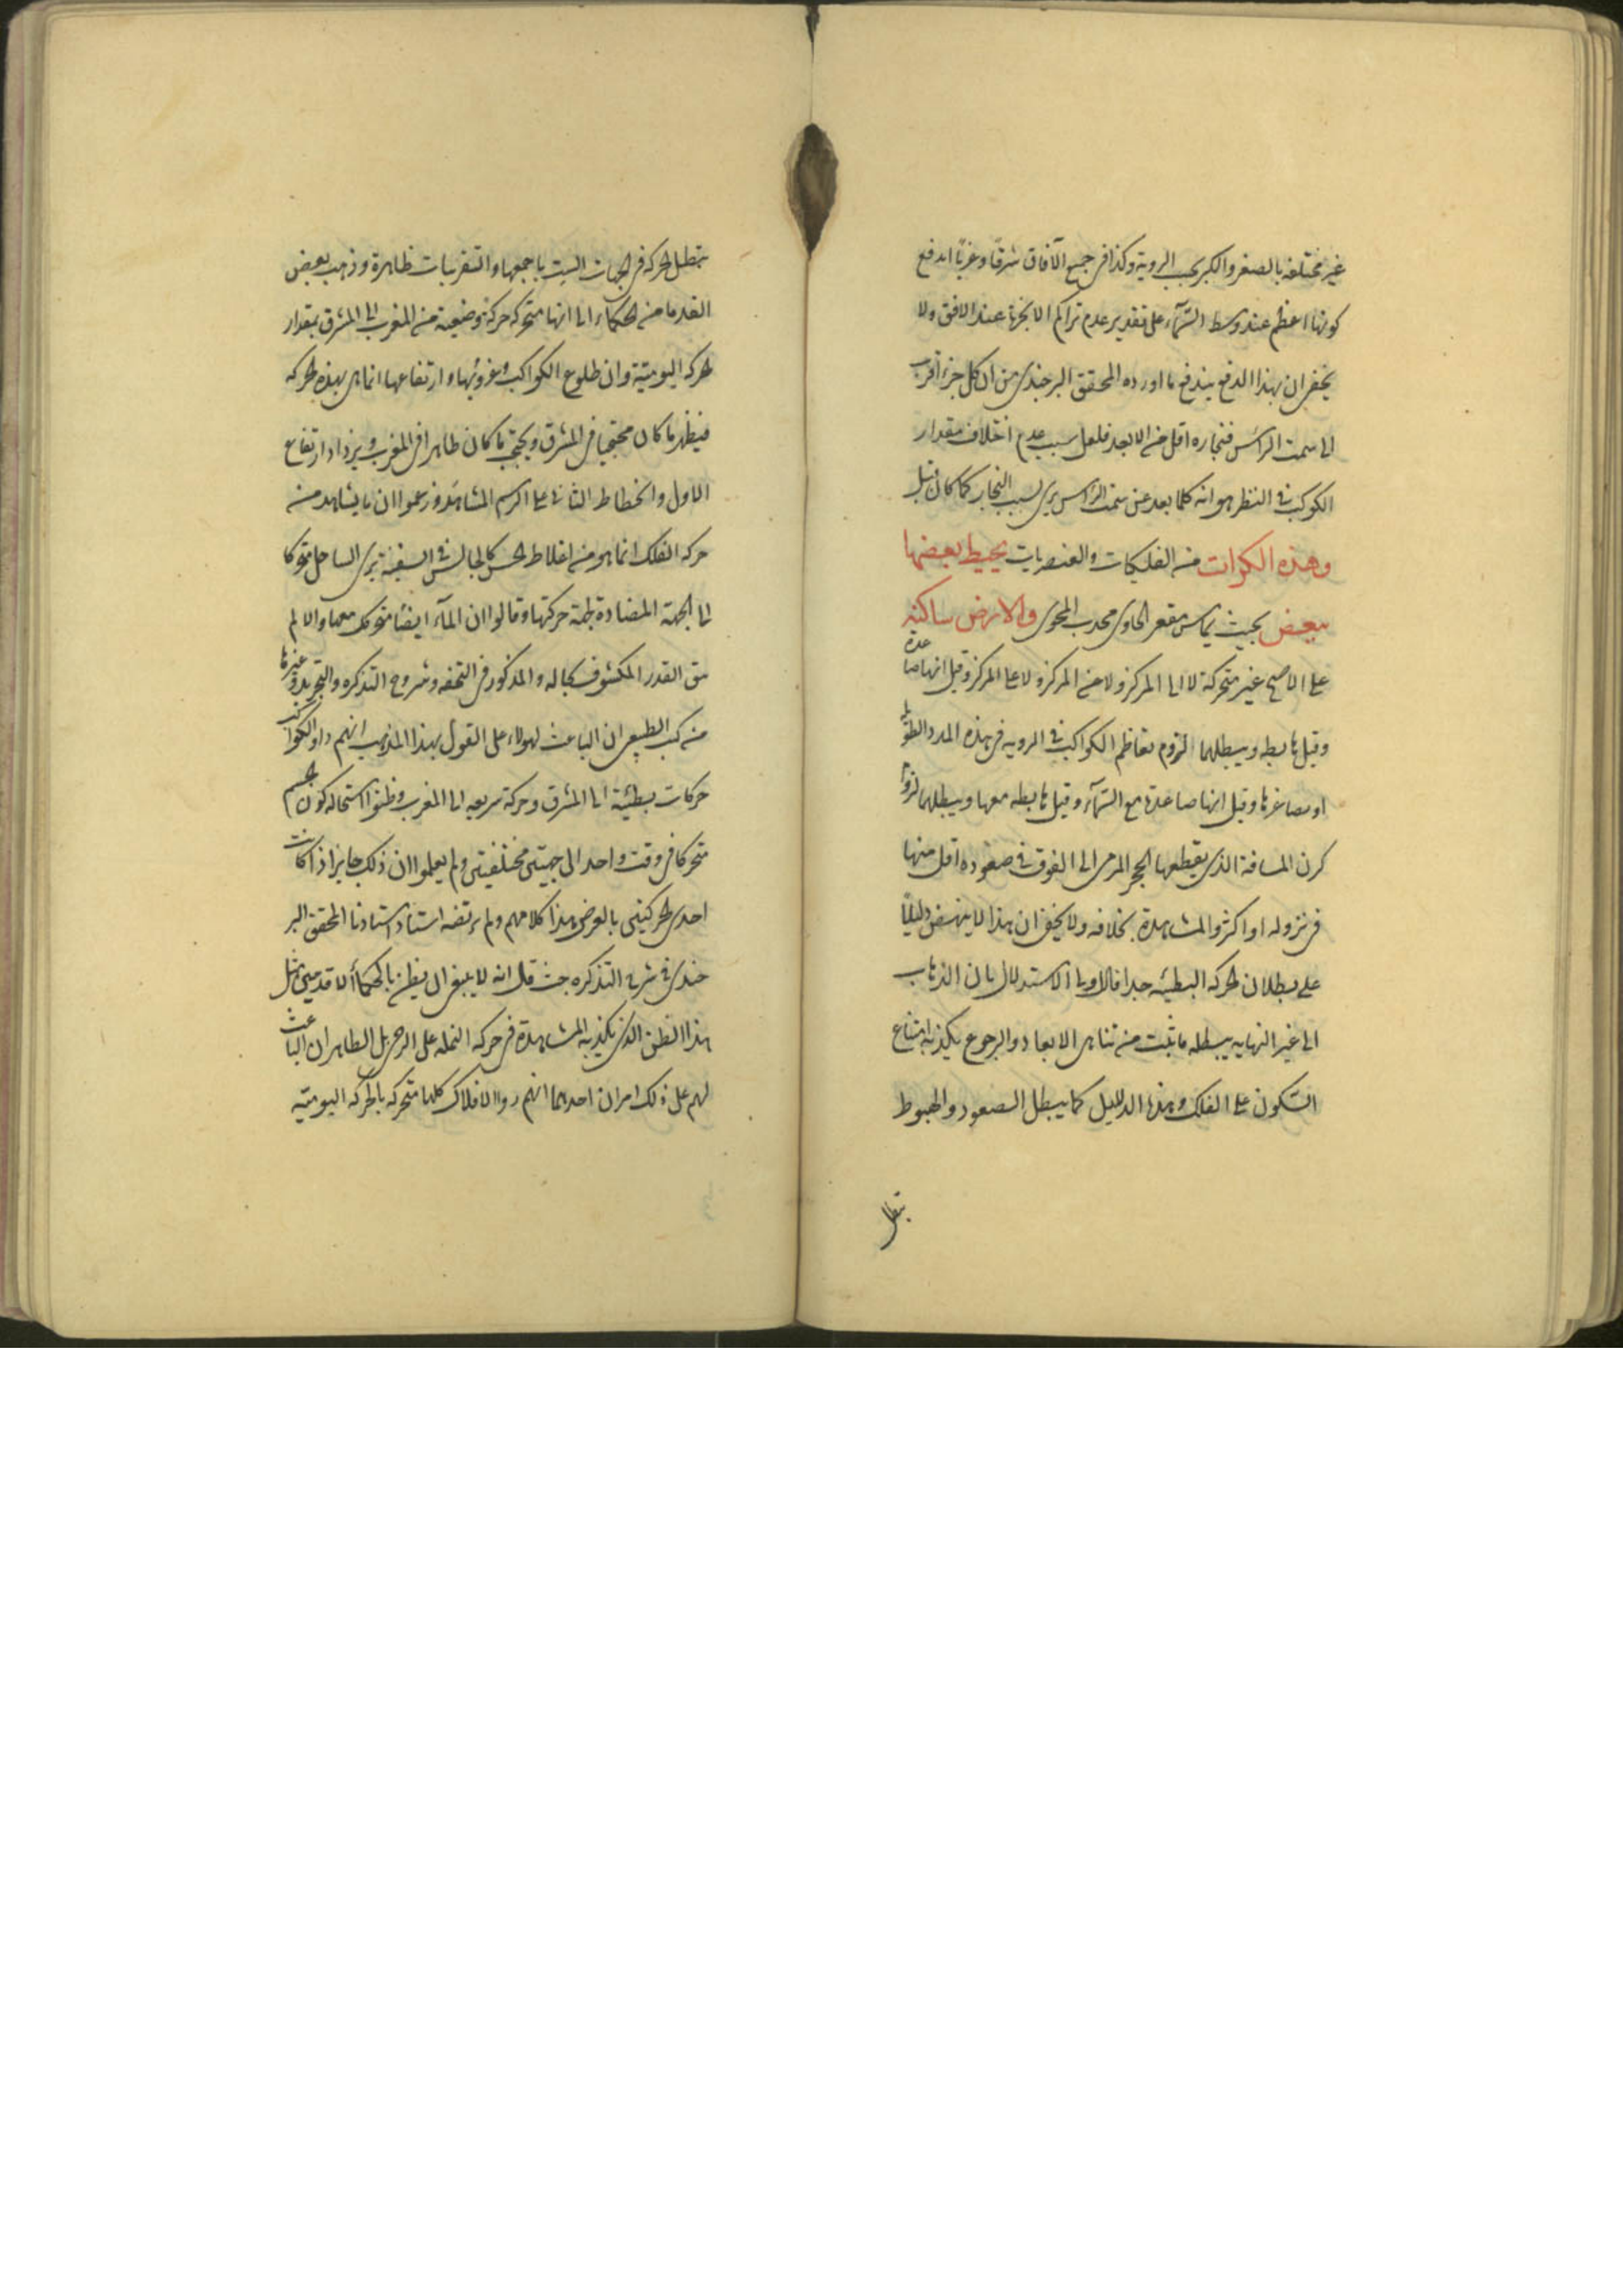 غير مختلفه بالصغر والكبر بحسب الروية وكذا فى جميع الآفاق شرقًا وغربًا اندفع
كونها اعظم عند وسط السّمآء على تقدير عدم تراكم الابخرة عند الافق ولا
يخفى ان بهذا الدفع يندفع ما اورده المحقق البرجندى من ان كل جزء اقرب
الى سمت الراس فبخاره اقل من الابعد فلعل سبب عدم اختلاف مقدار
الكوكب فى النظر هو انه كلما بعد عن سمت الراس يرى بسبب البخار كما كان قبل
وهذه الكرات من الفلكيات والعنصريات يحيط بعضها
ببعض بحيث يماس مقعر الحاوى محدب المحوى والارض ساكنة
على الاصح غير متحركة لا الى المركز ولا من المركز ولا على المركز وقيل انها صاعدة
وقيل هابطه ويبطلهما لزوم تعاظم الكواكب فى الرويه فى هذه المدد الطويلة
او تصاغرها وقيل انها صاعدة مع السّمآء وقيل هابطه معها ويبطلهما لزوم
كون المسافة الذى يقطعها الحجر المرمى الى الفوق فى صعوده اقل منها
فى نزوله او اكثر والمشاهدة بخلافه ولا يخفى ان هذا لا ينهض دليلًا
على بطلان الحركه البطيئه جدا فالاولى الاستدلال بان الذهاب
الى غير النهايه يبطله ما يثبت من تناهى الابعاد والرجوع يكذبه امتناع
السّكون على الفلك وهذا الدليل كما يبطل الصعود والهبوط
يبطل
يبطل الحركه فى الجهات الست باجمعها والتقريبات ظاهرة وذهب بعض
القدما من الحكماء الى انها متحركه حركة وضعية من المغرب الى المشرق بمقدار
الحركه اليوميّة وان طلوع الكواكب وغروبها وارتفاعها انما هى بهذه الحركه
فيظهر ما كان محتجبا فى المشرق ويحتجب ما كان ظاهرا فى المغرب ويزداد ارتفاع
الاول وانحطاط الثانى على الرسم المشاهد وزعموا ان ما يشاهد من
حركه الفلك انما هو من اغلاط الحس كالجالس فى السفينة يرى الساحل متحركا
الى الجهة المضادة لجهة حركتها وقالوا ان المآء ايضًا متحرك معها والا لم
يبق القدر المكشوف بحاله والمذكور فى التحفه وشروح التذكره والتجريد وغيرها
من كتب الطبيعى ان الباعث لهولاء على القول بهذا المذهب انهم راوا للكواكب
حركات بطيئة الى المشرق وحركة سريعه الى المغرب وظنوا استحاله كون الجسم
متحركا فى وقت واحد الى جهتين مختلفتين ولم يعلموا ان ذلك جايز اذا كانت
احدى الحركتين بالعرض هذا كلامهم ولم يرتضه استاد استادنا المحقق البر
جندى فى شرح التذكره حيث قال انه لا ينبغى ان يظن بالحكمآء الاقدمين مثل
هذا الظن الذى يكذبه المشاهدة فى حركه النمله على الرحى بل الظاهر ان الباعث
لهم على ذلك امران احدهما انهم راوا الافلاك كلها متحركه بالحركه اليوميّه